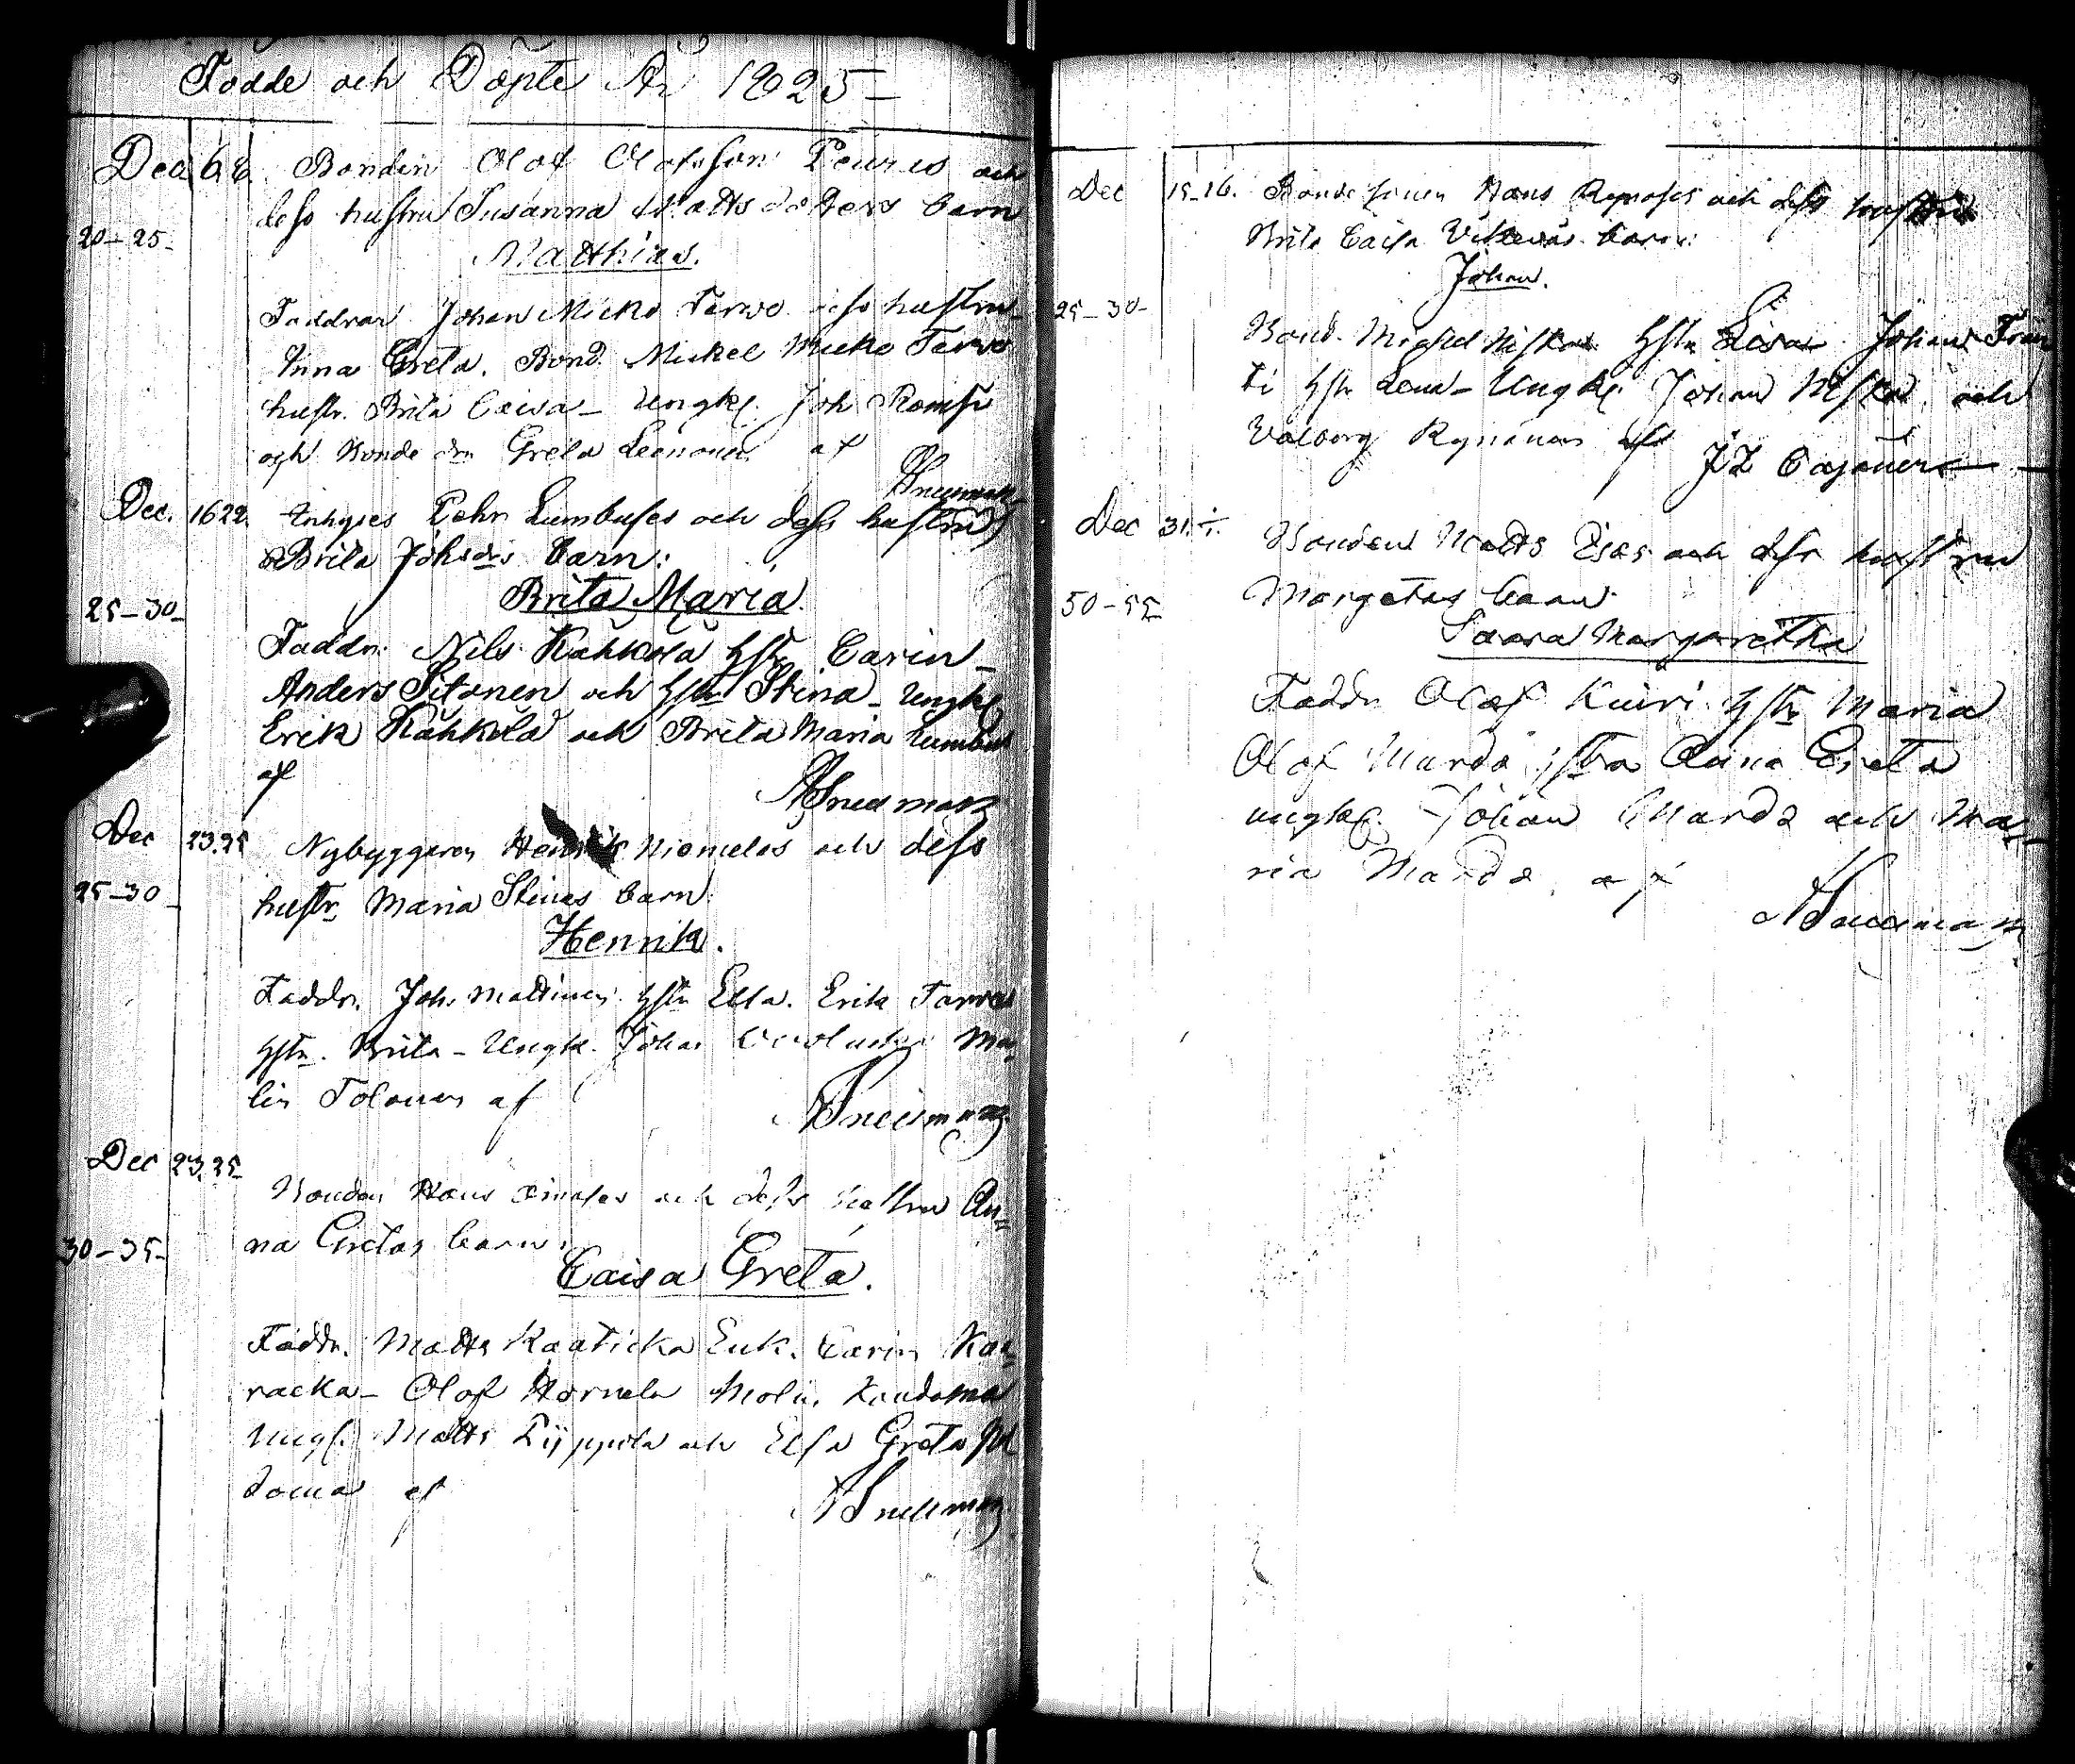 Födde och Döpte År 1825
Dec. 6. 8. Bonden Olof Olofsson Peuras och
dess hustru Susanna Mattsdotters barn
20-25-
Matthias.
Faddrar Johan Micko Tervo dess hustru
Anna Greta. Bond. Mickel Micko Tervo
hustr. Brita Caisa - Ungkl. Joh
och Bonde dn Greta Leinonen af
Snellman
Dec. 16 22. Inhyses Pehr Lumbuses och dess hustru
Brita Johsdrs barn:
Brita Maria.
25-30-
Faddr. Nils Kähkölä hstr Carin -
Anders Pitonen och hstr Stina - Ungkl
Erik Kähkölä och Brita Maria Lumbus
af
ASnellman
Dec 23.25 Nybyggaren Henrik Niemelas och dess
25-30-
hustr. Maria Stinas barn.
Henrik.
Faddr. Joh. Mattinen hstr Ella. Erik Tarvas
hstr. Brita - Ungk. Johan Ma
lin Tolonen af
ASnellman
Dec 23.25
Bonden Hans och dess hustru An
30-35-
na Gretas barn.
Caisa Greta.
Faddr. Matts Raaticka Enk. Carin Ka
racka - Olof Hornela
Ungk. Matts Pyppola och Elsa Greta
af
ASnellman
Dec 15-16. Bonde sonen Hans Rynäses och dess hustru
Brita Caisa barn:
Johan.
25-30-
Bond. Michel Niska hstr Lisa Johan Tran
ti hstr Lena - Ungkl. Johan Niska och
Valborg Rynänen af
JZ Cajaner
Dec 31.
Bonden Matts och dess hustru
Margetas barn
50-55
Saara Margaretha
Faddr Olof Kuiri hstr Maria
Olof Warda hstra Anna Greta
ungkl. Johan Warda och Ma
ria Warda af
ASnellman